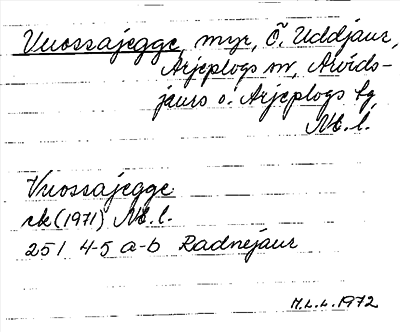 Vuossajegge, myr, Ö. Uddjaur,
Arjeplogs sn, Arvids-
jaurs o. Arjeplogs tg,
Nb. l.
Vuossajegge
ek (1971) Nb. l.
25 I 4-5 a-b Radnejaur
M.L.L. 1972